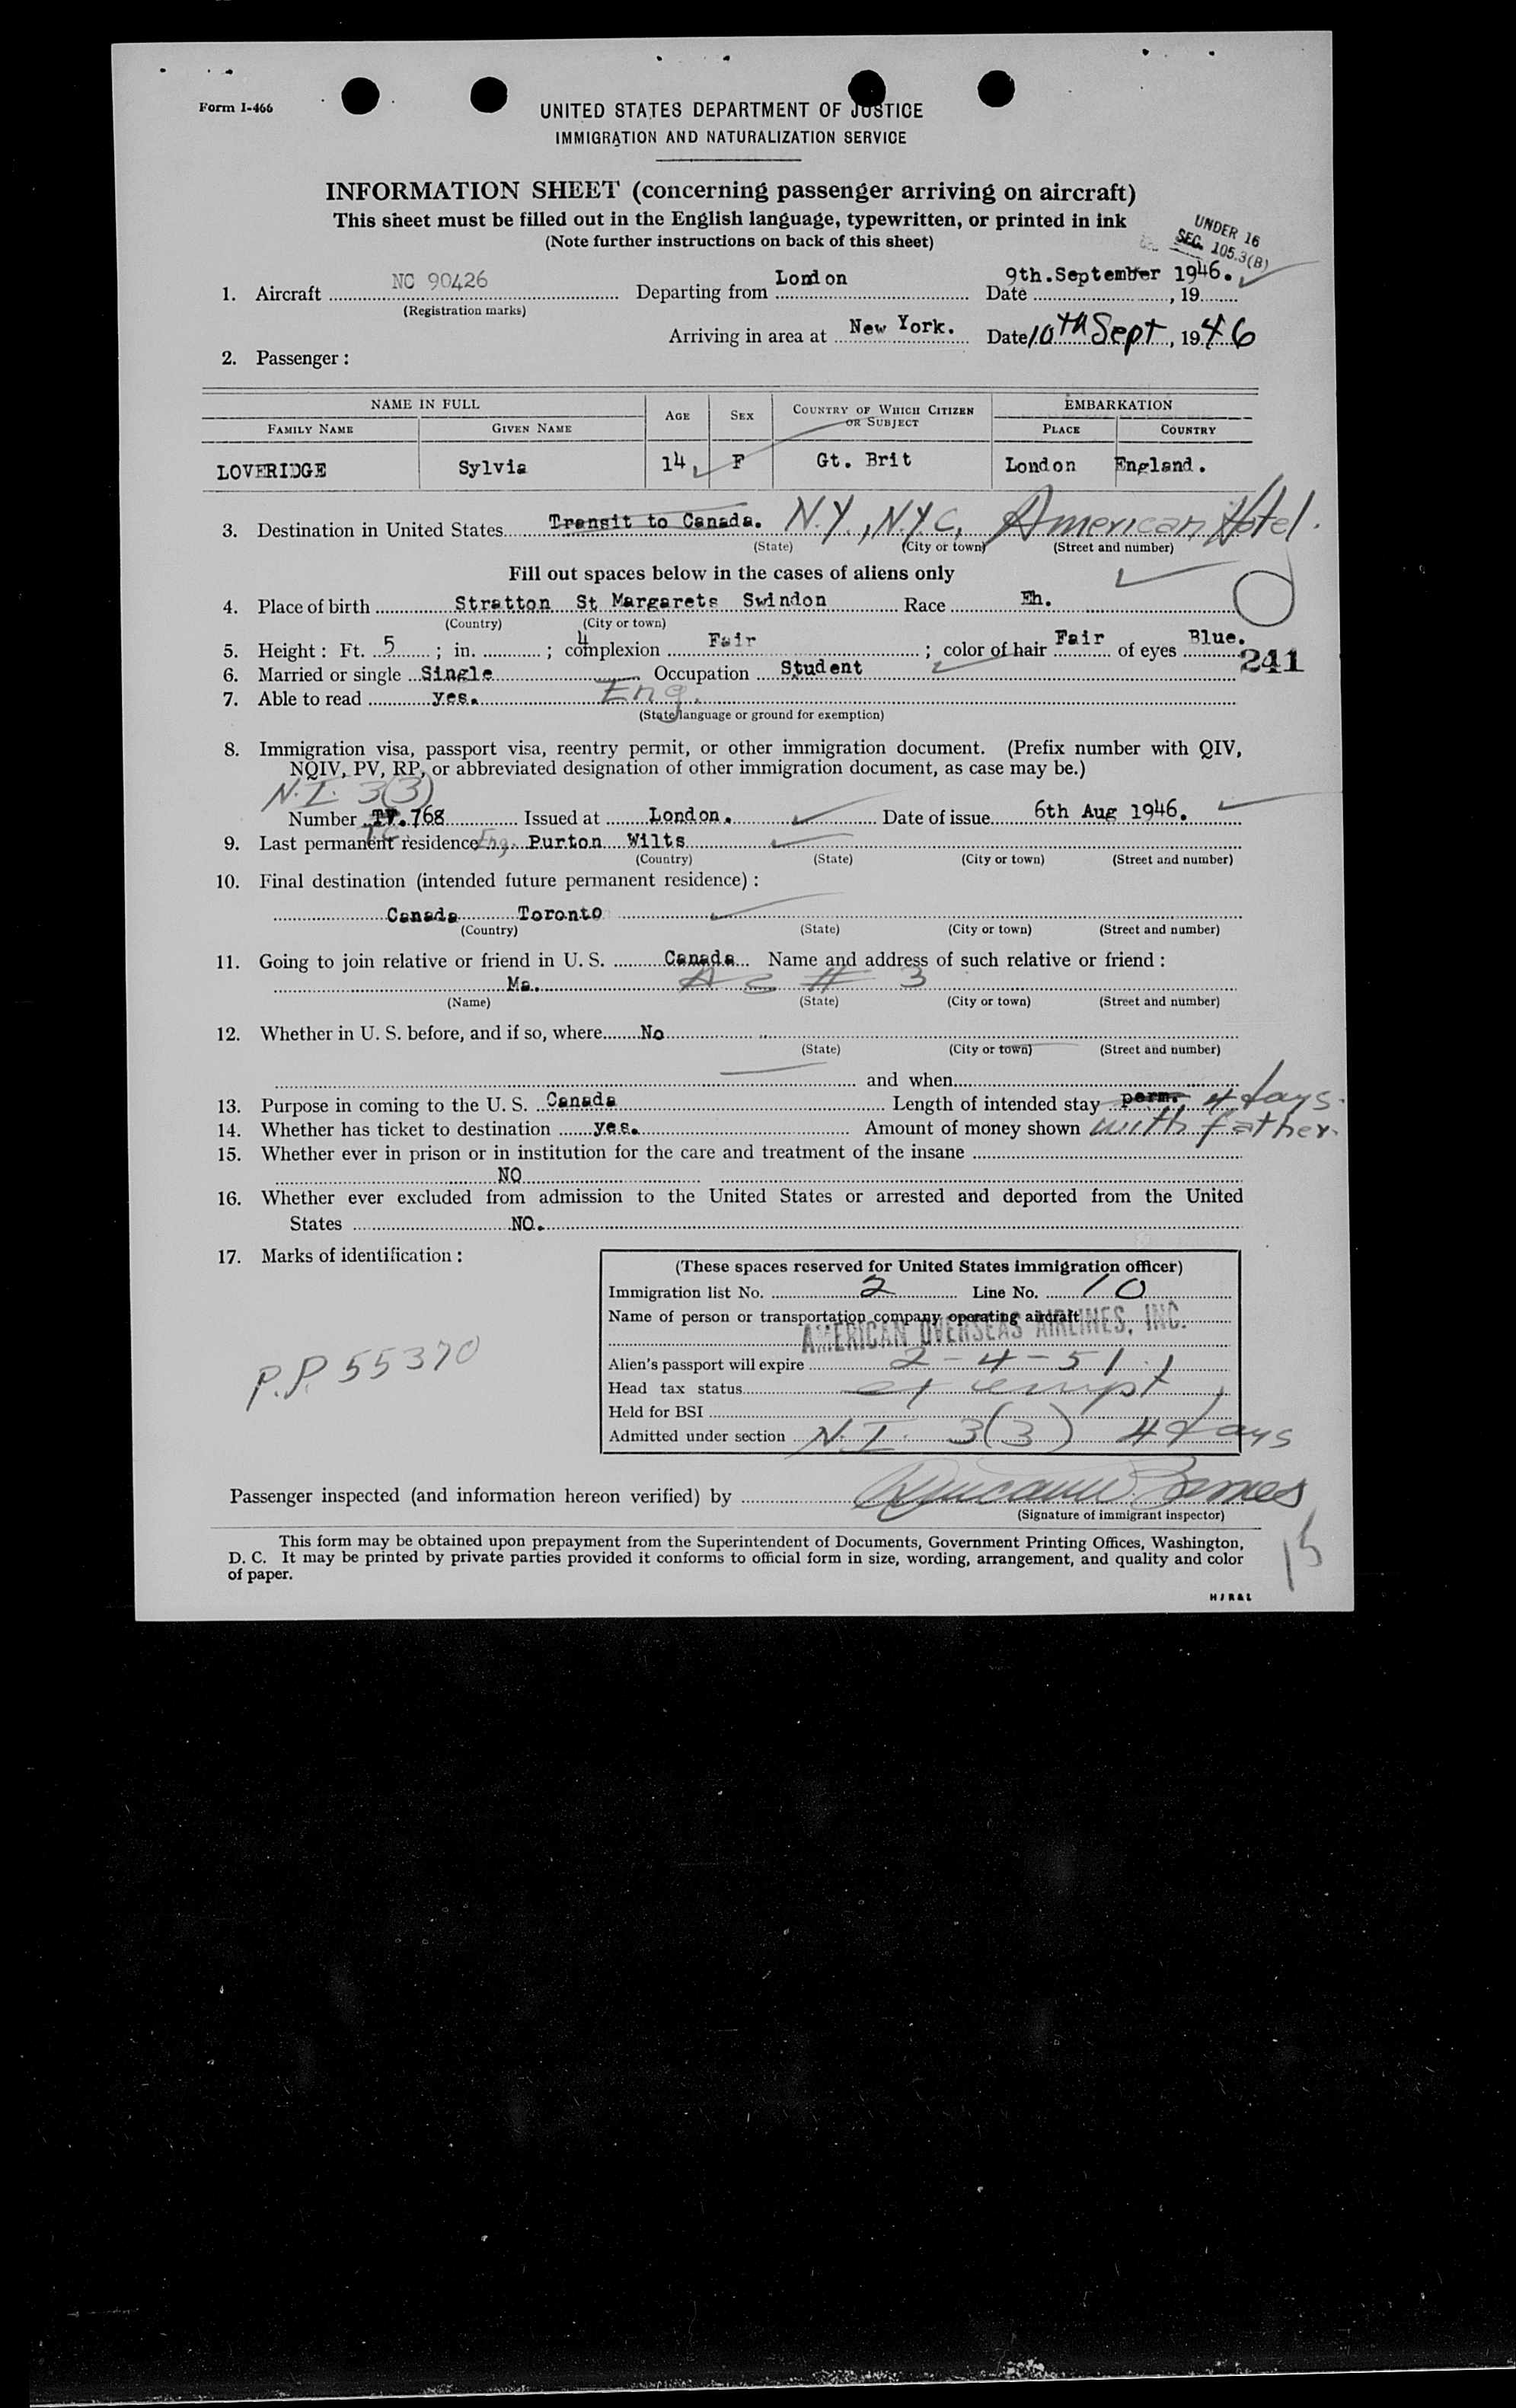 Form I-466
UNITED STATES DEPARTMENT OF JUSTICE
IMMIGRATION AND NATURALIZATION SERVICE
INFORMATION SHEET (concerning passenger arriving on aircraft)
This sheet must be filled out in the English language, typewritten, or printed in ink
(Note further instructions on back of this sheet)
UNDER 16
SEC. 105.3(B)
1. Aircraft NC 90426 Departing from London Date 9th.September 1946. , 19
(Registration marks)
Arriving in area at New York. Date 10th Sept, 1946
2. Passenger :
NAME IN FULL AGE SEX COUNTRY OF WHICH CITIZEN OR SUBJECT EMBARKATION
FAMILY NAME GIVEN NAME PLACE COUNTRY
LOVERIDGE Sylvia 14 F Gt. Brit London England.
3. Destination in United States Transit to Canada. N.Y., N.Y.C, American Hotel.
(State) (City or town) (Street and number)
Fill out spaces below in the cases of aliens only
4. Place of birth Stratton St Margarets Swindon Race Eh.
(Country) (City or town)
5. Height : Ft. 5 ; in. 4 ; complexion Fair ; color of hair Fair of eyes Blue.
241
6. Married or single Single Occupation Student
7. Able to read yes. Eng.
(State language or ground for exemption)
8. Immigration visa, passport visa, reentry permit, or other immigration document. (Prefix number with QIV,
NQIV, PV, RP, or abbreviated designation of other immigration document, as case may be.)
N.I. 3(3)
Number TV. 768 Issued at London. Date of issue 6th Aug 1946.
9. Last permanent residence Eng. Purton Wilts
(Country) (State) (City or town) (Street and number)
10. Final destination (intended future permanent residence) :
Canada Toronto
(Country) (State) (City or town) (Street and number)
11. Going to join relative or friend in U. S. Canada Name and address of such relative or friend :
Ma. # 3
(Name) (State) (City or town) (Street and number)
12. Whether in U. S. before, and if so, where No
(State) (City or town) (Street and number)
and when
13. Purpose in coming to the U. S. Canada Length of intended stay perm. 4 days.
14. Whether has ticket to destination yes. Amount of money shown with father.
15. Whether ever in prison or in institution for the care and treatment of the insane
NO
16. Whether ever excluded from admission to the United States or arrested and deported from the United
States NO.
17. Marks of identification :
P.P. 55370
(These spaces reserved for United States immigration officer)
Immigration list No. 2 Line No. 10
Name of person or transportation company operating aircraft
AMERICAN OVERSEAS AIRLINES, INC.
Alien's passport will expire 2-4-51
Head tax status exempt
Held for BSI
Admitted under section N.I. 3(3) 4 days
Passenger inspected (and information hereon verified) by
(Signature of immigrant inspector)
This form may be obtained upon prepayment from the Superintendent of Documents, Government Printing Offices, Washington,
D. C. It may be printed by private parties provided it conforms to official form in size, wording, arrangement, and quality and color
of paper.
H J R & L